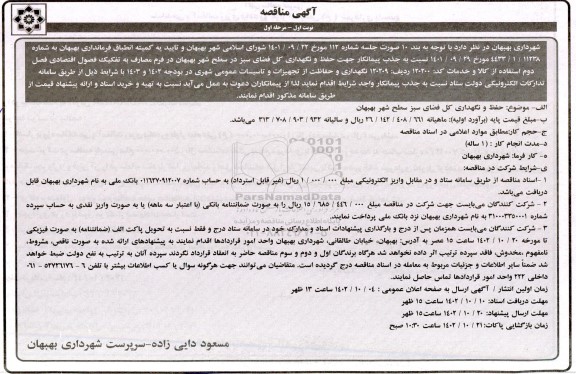 آگهی مناقصه
نوبت اول - مرحله اول
شهرداری بهبهان در نظر دارد با توجه به بند ۱۰ صورت جلسه شماره ۱۱۲ مورخ ۲۲ / ۰۹ / ۱۴۰۱ شورای اسلامی شهر بهبهان و تایید به کمیته انطباق فرمانداری بهبهان به شماره
۱۱۲۳۸ / ۱ / ۴۴۳۲ مورخ ۲۹ / ۰۹ / ۱۴۰۱ نسبت به جذب پیمانکار جهت حفظ و نگهداری کل فضای سبز در سطح شهر بهبهان در فرم مصارف به تفکیک فصول اقتصادی فصل
دوم استفاده از کالا و خدمات کد: ۱۲۰۲۰۰ ردیف: ۱۲۰۲۰۹ نگهداری و حفاظت از تجهیزات و تاسیسات عمومی شهری در بودجه ۱۴۰۲ و ۱۴۰۳ با شرایط ذیل از طریق سامانه
تدارکات الکترونیکی دولت ستاد نسبت به جذب پیمانکار واجد شرایط اقدام نماید لذا از پیمانکاران دعوت به عمل می‌آید نسبت به تهیه و خرید اسناد و ارائه پیشنهاد قیمت از
طریق سامانه مذکور اقدام نمایند.
الف- موضوع: حفظ و نگهداری کل فضای سبز سطح شهر بهبهان
ب- مبلغ قیمت پایه (برآورد اولیه): ماهیانه ۶۶۱ / ۴۰۸ / ۱۴۲ / ۲۶ ریال و سالیانه ۹۳۲ / ۹۰۳ / ۷۰۸ / ۳۱۳ می‌باشد.
ج- حجم کار: مطابق موارد اعلامی در اسناد مناقصه
د- مدت انجام کار : (۱ ساله)
ه- کار فرما: شهرداری بهبهان
ی- شرایط شرکت در مناقصه:
۱- اسناد مناقصه از طریق سامانه ستاد و در مقابل واریز الکترونیکی مبلغ ۰۰۰ / ۰۰۰ / ۱ ریال (غیر قابل استرداد) به حساب شماره ۰۱۱۶۳۷۰۹۱۲۰۰۷ بانک ملی به نام شهرداری بهبهان قابل
دریافت می‌باشد.
۲ - شرکت کنندگان می‌بایست جهت شرکت در مناقصه مبلغ ۰۰۰ / ۴۴۶ / ۶۸۵ / ۱۵ ریال را به صورت ضمانتنامه بانکی (با اعتبار سه ماهه) یا به صورت واریز نقدی به حساب سپرده
شماره ۳۱۰۰۰۳۳۵۰۰۰۱ به نام شهرداری بهبهان نزد بانک ملی پرداخت نمایند.
۳ - شرکت کنندگان می‌بایست همزمان پس از درج و بارگذاری پیشنهادات اسناد و مدارک خود در سامانه ستاد درج و فقط نسبت به تحویل پاکت الف (ضمانتنامه) به صورت فیزیکی
تا مورخه ۲۰ / ۱۰ / ۱۴۰۲ ساعت ۱۵ عصر به آدرس: بهبهان، خیابان طالقانی، شهرداری بهبهان واحد امور قراردادها اقدام نمایند به پیشنهادهای ارائه شده به صورت ناقص، مشروط،
نامفهوم، مخدوش، فاقد سپرده ترتیب اثر داده نخواهد شد هرگاه برندگان اول و دوم و سوم مناقصه حاضر به انعقاد قرارداد نگردند سپرده آنان به ترتیب به نفع دولت ضبط خواهد
شد ضمناً سایر اطلاعات و جزئیات مربوط به معامله در اسناد مناقصه درج گردیده است. متقاضیان می‌توانند جهت هرگونه سوال یا کسب اطلاعات بیشتر با تلفن ۶ - ۵۲۷۲۶۱۷۶ - ۰۶۱
داخلی ۲۲۲ واحد امور قراردادها تماس حاصل نمایند.
زمان اولین انتشار / آگهی ارسال به صفحه اعلان عمومی : ۰۴ / ۱۰ / ۱۴۰۲ ساعت ۱۳ ظهر
مهلت دریافت اسناد: ۱۰ / ۱۰ / ۱۴۰۲ ساعت ۱۵ ظهر
مهلت ارسال پیشنهاد: ۲۰ / ۱۰ / ۱۴۰۲ ساعت ۱۵ ظهر
زمان بازگشایی پاکات: ۲۱ / ۱۰ / ۱۴۰۲ ساعت ۱۰:۳۰ صبح
مسعود دایی زاده-سرپرست شهرداری بهبهان